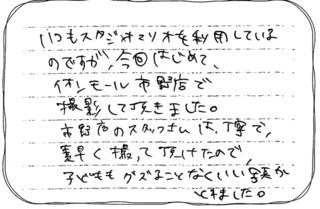 いつもスタジオマリオを利用している
のですが、今回はじめて、
イオンモール市野店で
撮影して頂きました。
市野店のスタッフさんは、丁寧で、
素早く撮って頂けたので、
子どももグズることなくいい写真が
とれました。